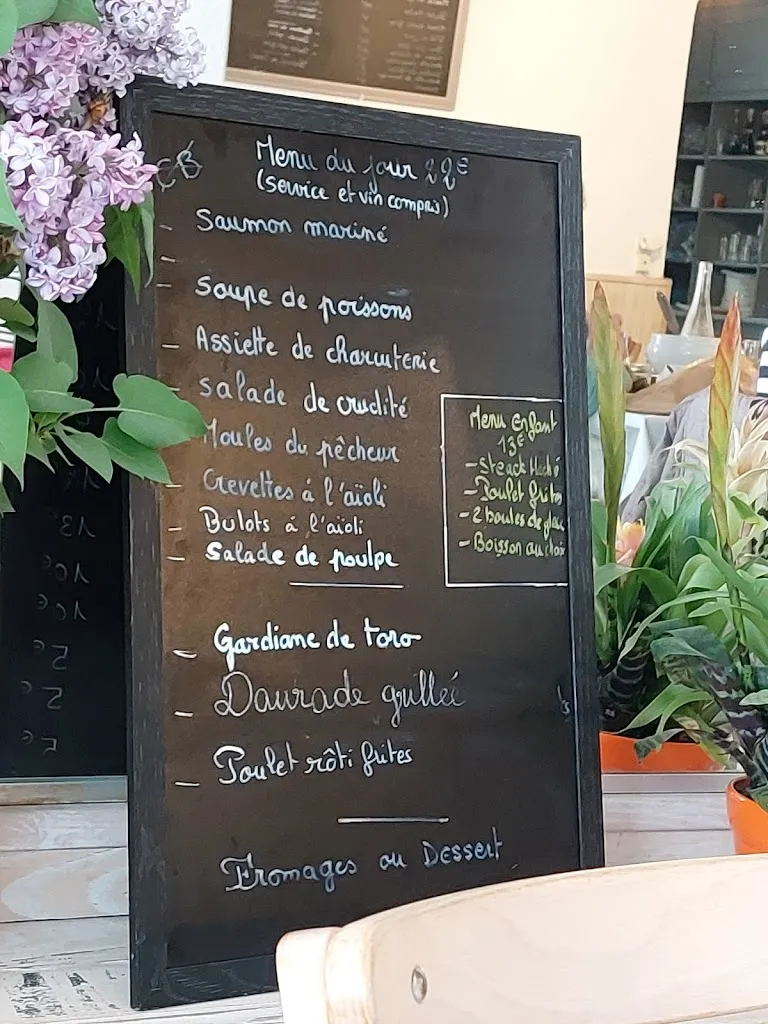 Menu du jour 22€
(service et vin compris)
- Saumon mariné
-
- Soupe de poissons
- Assiette de charcuterie
- Salade de crudité
Moules du pêcheur
- Crevettes à l'aïoli
- Bulots à l'aïoli
- Salade de poulpe
- Gardiane de toro
- Daurade grillée
- Poulet rôti frites
Fromages ou Dessert
Menu Enfant
13€
- Steack Haché
- Poulet frites
- 2 boules de glace
- Boisson au choix